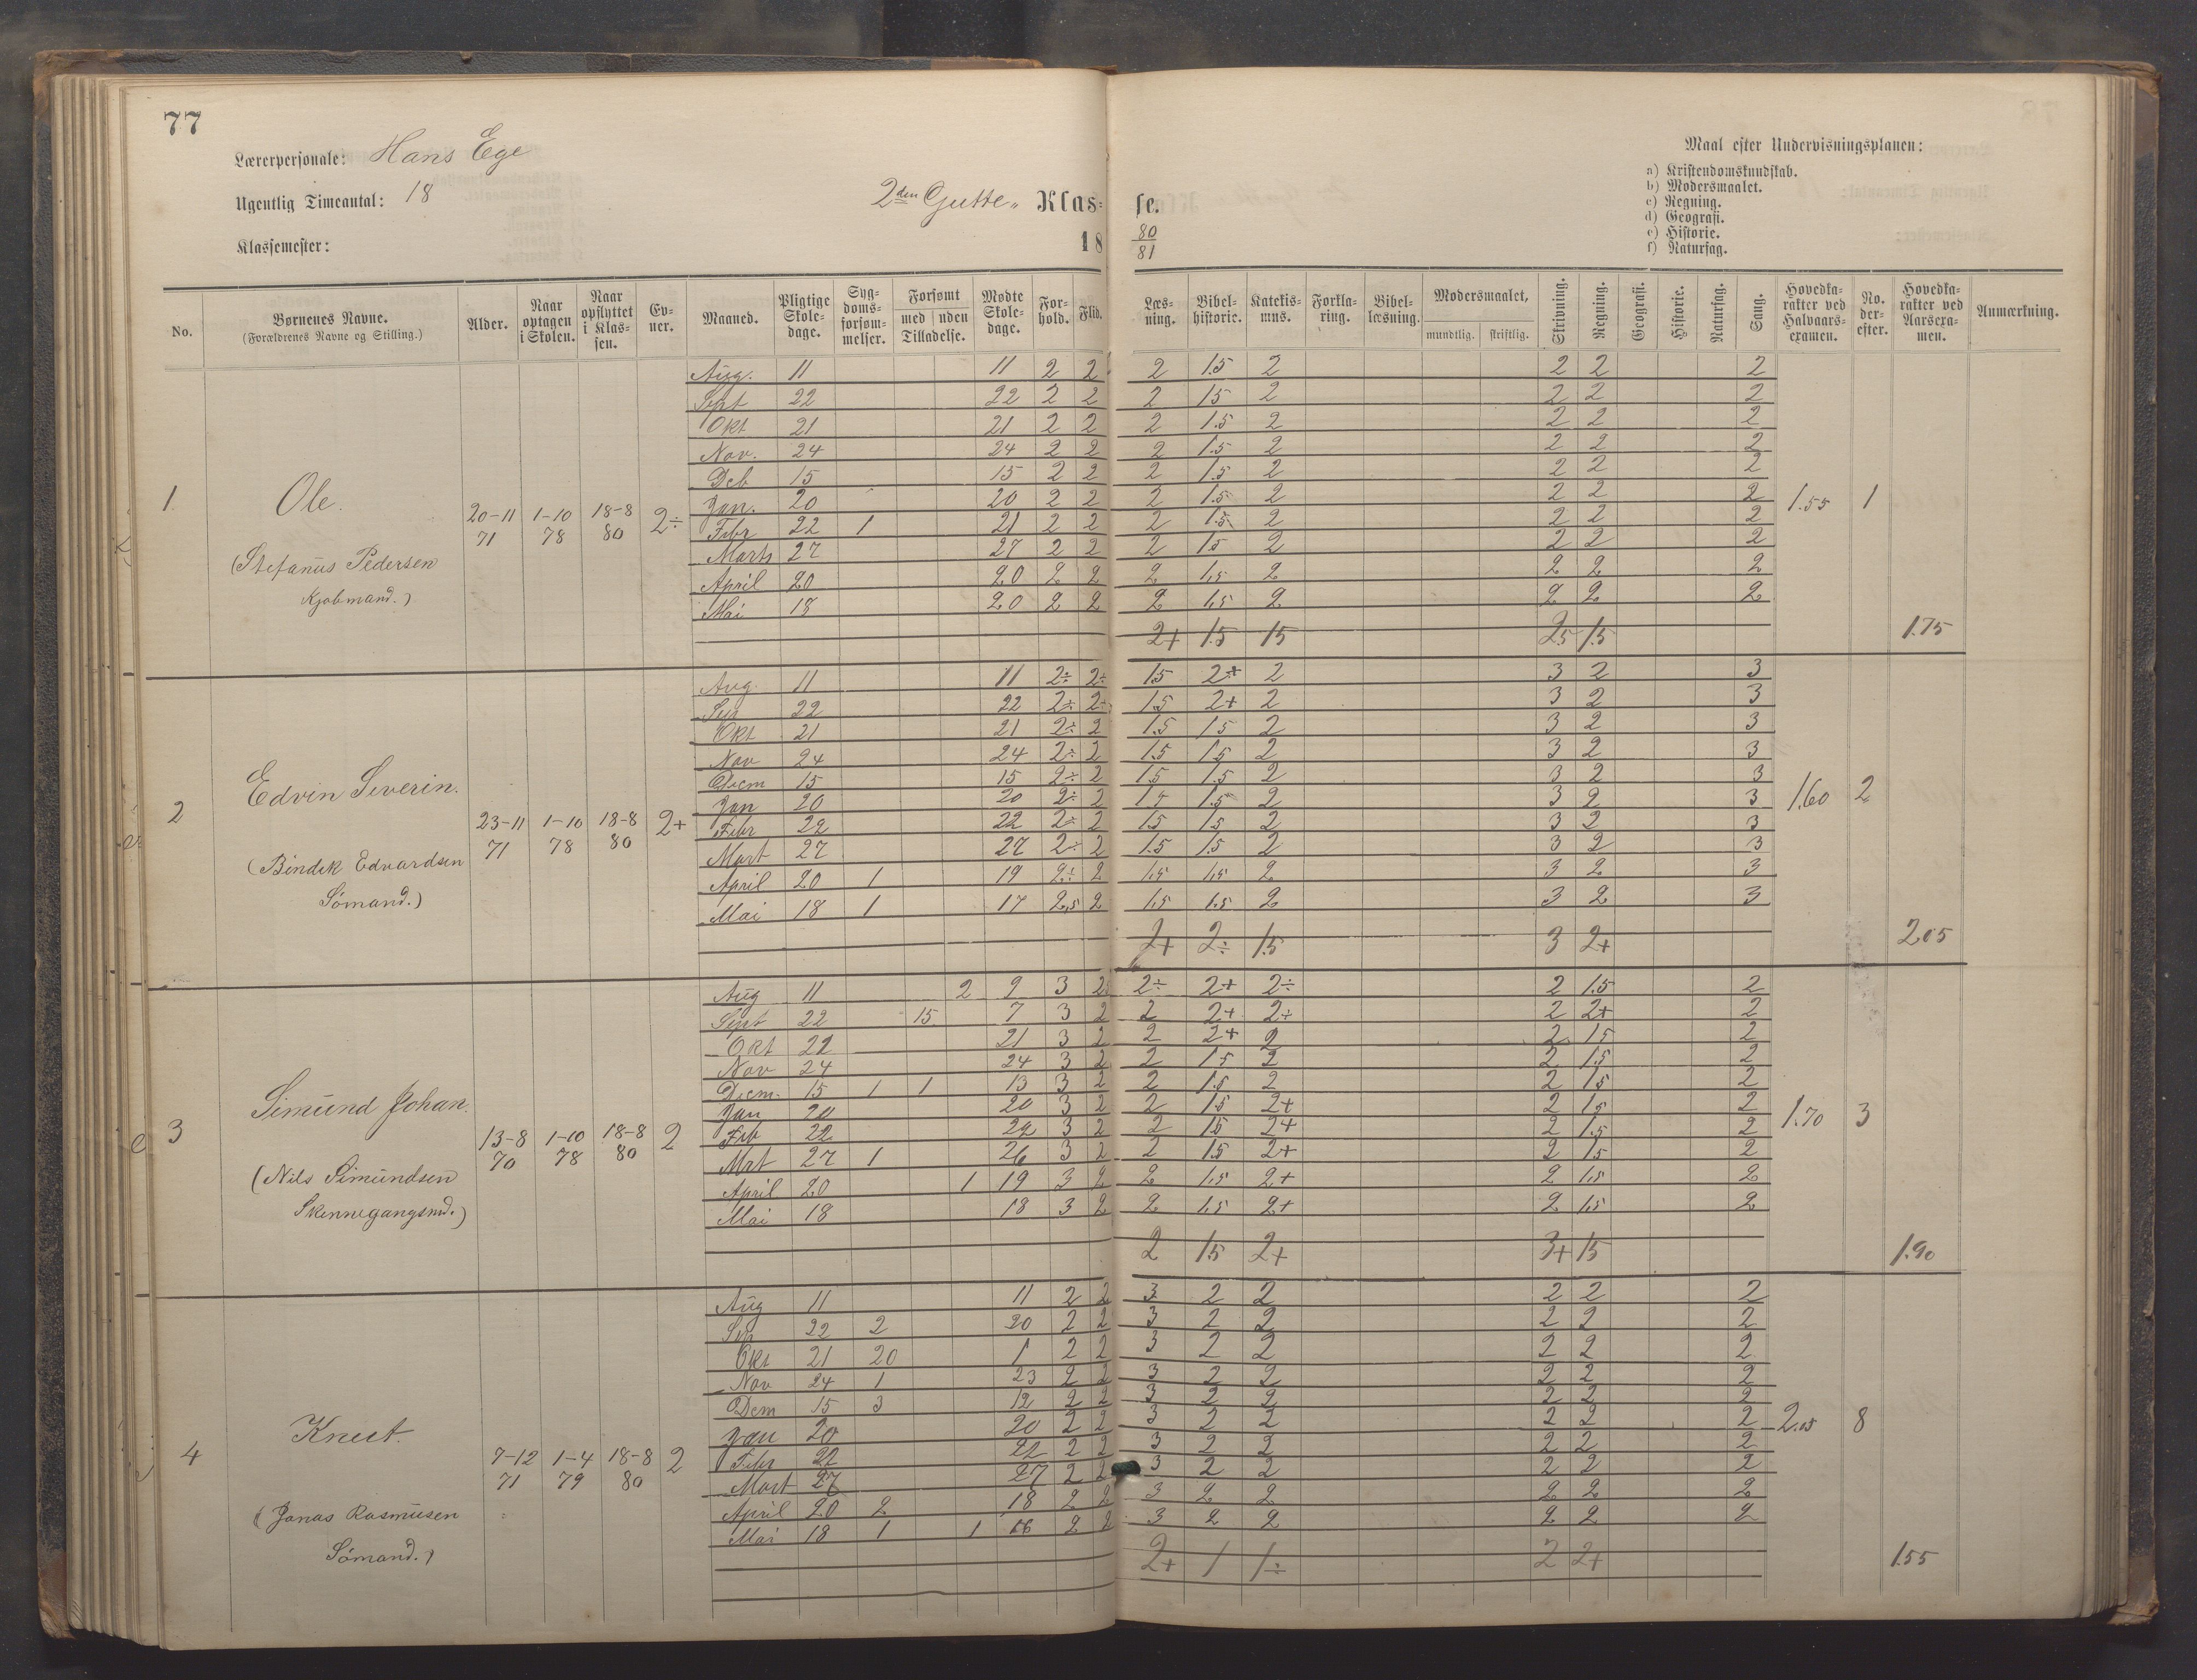 77
Lærerpersonale: Hans Ege
Ugentlig Timeantal: 18
Klassemester:
2den Gutte- Klasse.
18 80/81
Maal efter Undervisningsplanen:
a) Kristendomskundskab.
b) Modersmaalet.
c) Regning.
d) Geografi.
e) Historie.
f) Naturfag.
No. | Børnenes Navne. (Forældrenes Navne og Stilling.) | Alder. | Naar optagen i Skolen. | Naar opflyttet i Klassen. | Evner. | Maaned. | Pligtige Skoledage. | Sygdomsforsømmelser. | Forsømt med / uden Tilladelse. | Mødte Skoledage. | Forhold. | Flid. | Læsning. | Bibelhistorie. | Katekismus. | Forklaring. | Bibellæsning. | Modersmaalet, mundtlig. skriftlig. | Skrivning. | Regning. | Geografi. | Historie. | Naturfag. | Sang. | Hovedkarakter ved Halvaarsexamen. | No. derefter. | Hovedkarakter ved Aarsexamen. | Anmærkning.
1 Ole. (Stefanus Pedersen Kjøbmand.) 20-11 71 1-10 78 18-8 80 2÷ 1.55 1
Aug. 11 11 2 2 2 1.5 2 2 2 2
Sept 22 22 2 2 2 15 2 2 2 2
Okt 21 21 2 2 2 1.5 2 2 2 2
Nov. 24 24 2 2 2 1.5 2 2 2 2
Deb 15 15 2 2 2 1.5 2 2 2 2
Jan. 20 20 2 2 2 1.5 2 2 2 2
Febr 22 1 21 2 2 2 1.5 2 2 2 2
Marts 27 27 2 2 2 15 2 2 2 2
April 20 20 2 2 2 1,5 2 2 2 2
Mai 18 20 2 2 2 1,5 2 2 2 2
2+ 1.5 15 25 1.5 1.75
2 Edvin Severin. (Bindik Edvardsen Sömand.) 23-11 71 1-10 78 18-8 80 2+ 1.60 2
Aug 11 11 2÷ 2÷ 15 2+ 2 3 2 3
Sep 22 22 2÷ 2÷ 1.5 2+ 2 3 2 3
Okt 21 21 2÷ 2 1.5 15 2 3 2 3
Nov 24 24 2÷ 2 1.5 15 2 3 2 3
Decm 15 15 2÷ 2 1.5 1.5 2 3 2 3
Jan 20 20 2÷ 2 1.5 1.5 2 3 2 3
Febr 22 22 2÷ 2 1.5 15 2 3 2 3
Mart 27 27 2÷ 2 1.5 1.5 2 3 2 3
April 20 1 19 2÷ 2 1,5 1,5 2 3 2 3
Mai 18 1 17 2,5 2 1,5 1,5 2 3 2 3
2+ 2÷ 1.5 3 2+ 2.05
3 Simund Johan. (Nils Simundsen Skennegangsmd.) 13-8 70 1-10 78 18-8 80 2 1.70 3
Aug 11 2 9 3 2 2÷ 2+ 2÷ 2 1.5 2
Sept 22 15 7 3 2 2 2+ 2÷ 2 2+ 2
Okt 21 21 3 2 2 2+ 2 2 15 2
Nov 24 24 3 2 2 1.5 2 2 1.5 2
Decm. 15 1 1 13 3 2 2 1.5 2 2 15 2
Jan 20 20 3 2 2 15 2+ 2 15 2
Feb 22 22 3 2 2 15 2+ 2 1.5 2
Mrt 27 1 26 3 2 2 15 2+ 2 15 2
April 20 1 19 3 2 2 1,5 2+ 2 1,5 2
Mai 18 18 3 2 2 1,5 2+ 2 1,5 2
2 1.5 2+ 3+ 15 1.90
4 Knut. (Jonas Rasmusen Sömand.) 7-12 71 1-4 79 18-8 80 2 2.15 8
Aug 11 11 2 2 3 2 2 2 2 2
Sep 22 2 20 2 2 3 2 2 2 2 2
Okt 21 20 1 2 2 3 2 2 2 2 2
Nov 24 1 23 2 2 3 2 2 2 2 2
Dem 15 3 12 2 2 3 2 2 2 2 2
Jan 20 20 2 2 3 2 2 2 2 2
Febr 22 22 2 2 3 2 2 2 2 2
Mart 27 27 2 2 3 2 2 2 2 2
April 20 2 18 2 2 3 2 2 2 2 2
Mai 18 1 1 16 2 2 3 2 2 2 2 2
2+ 1 1÷ 2 2+ 1.55